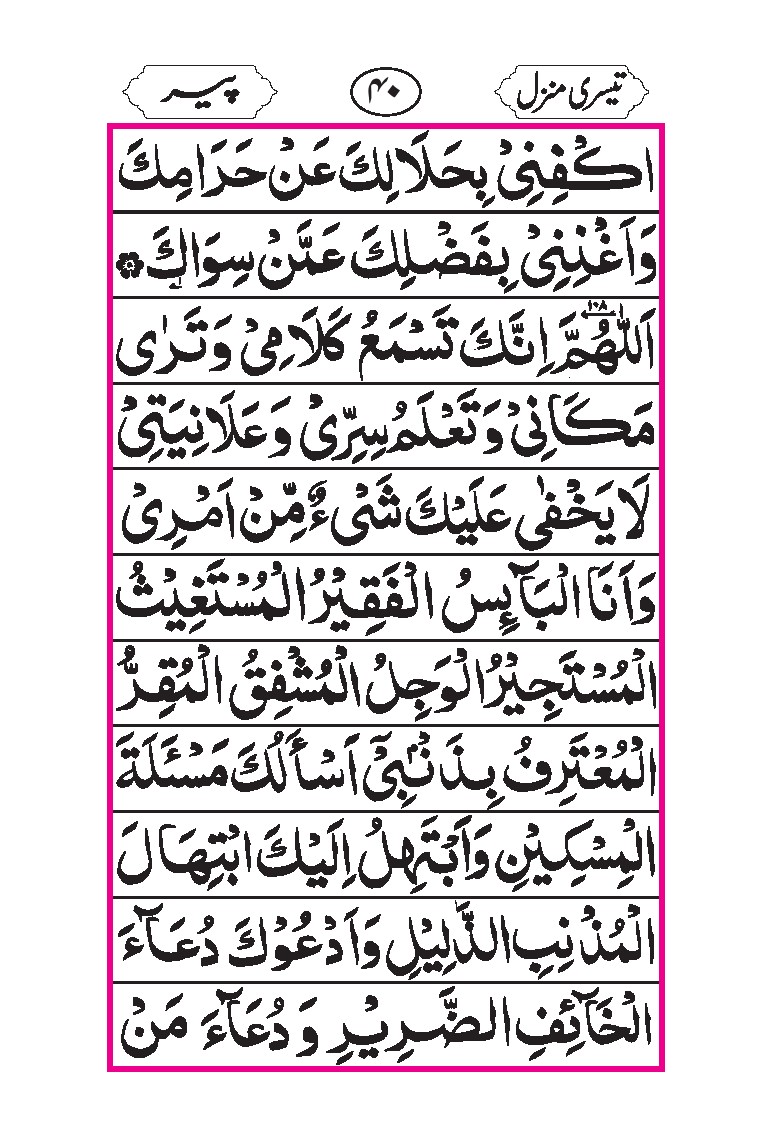 تیسری منزل ۴۰ پیر
اكْفِنِيْ بِحَلَالِكَ عَنْ حَرَامِكَ
وَاَغْنِنِيْ بِفَضْلِكَ عَمَّنْ سِوَاكَ
۱۰۸
اَللّٰهُمَّ اِنَّكَ تَسْمَعُ كَلَامِيْ وَتَرٰى
مَكَانِيْ وَتَعْلَمُ سِرِّيْ وَعَلَانِيَتِيْ
لَا يَخْفٰى عَلَيْكَ شَيْءٌ مِّنْ اَمْرِيْ
وَاَنَا الْبَآئِسُ الْفَقِيْرُ الْمُسْتَغِيْثُ
الْمُسْتَجِيْرُ الْوَجِلُ الْمُشْفِقُ الْمُقِرُّ
الْمُعْتَرِفُ بِذَنْۢبِيْٓ اَسْأَلُكَ مَسْئَلَةَ
الْمِسْكِيْنِ وَاَبْتَهِلُ اِلَيْكَ ابْتِهَالَ
الْمُذْنِبِ الذَّلِيْلِ وَاَدْعُوْكَ دُعَآءَ
الْخَآئِفِ الضَّرِيْرِ وَدُعَآءَ مَنْ